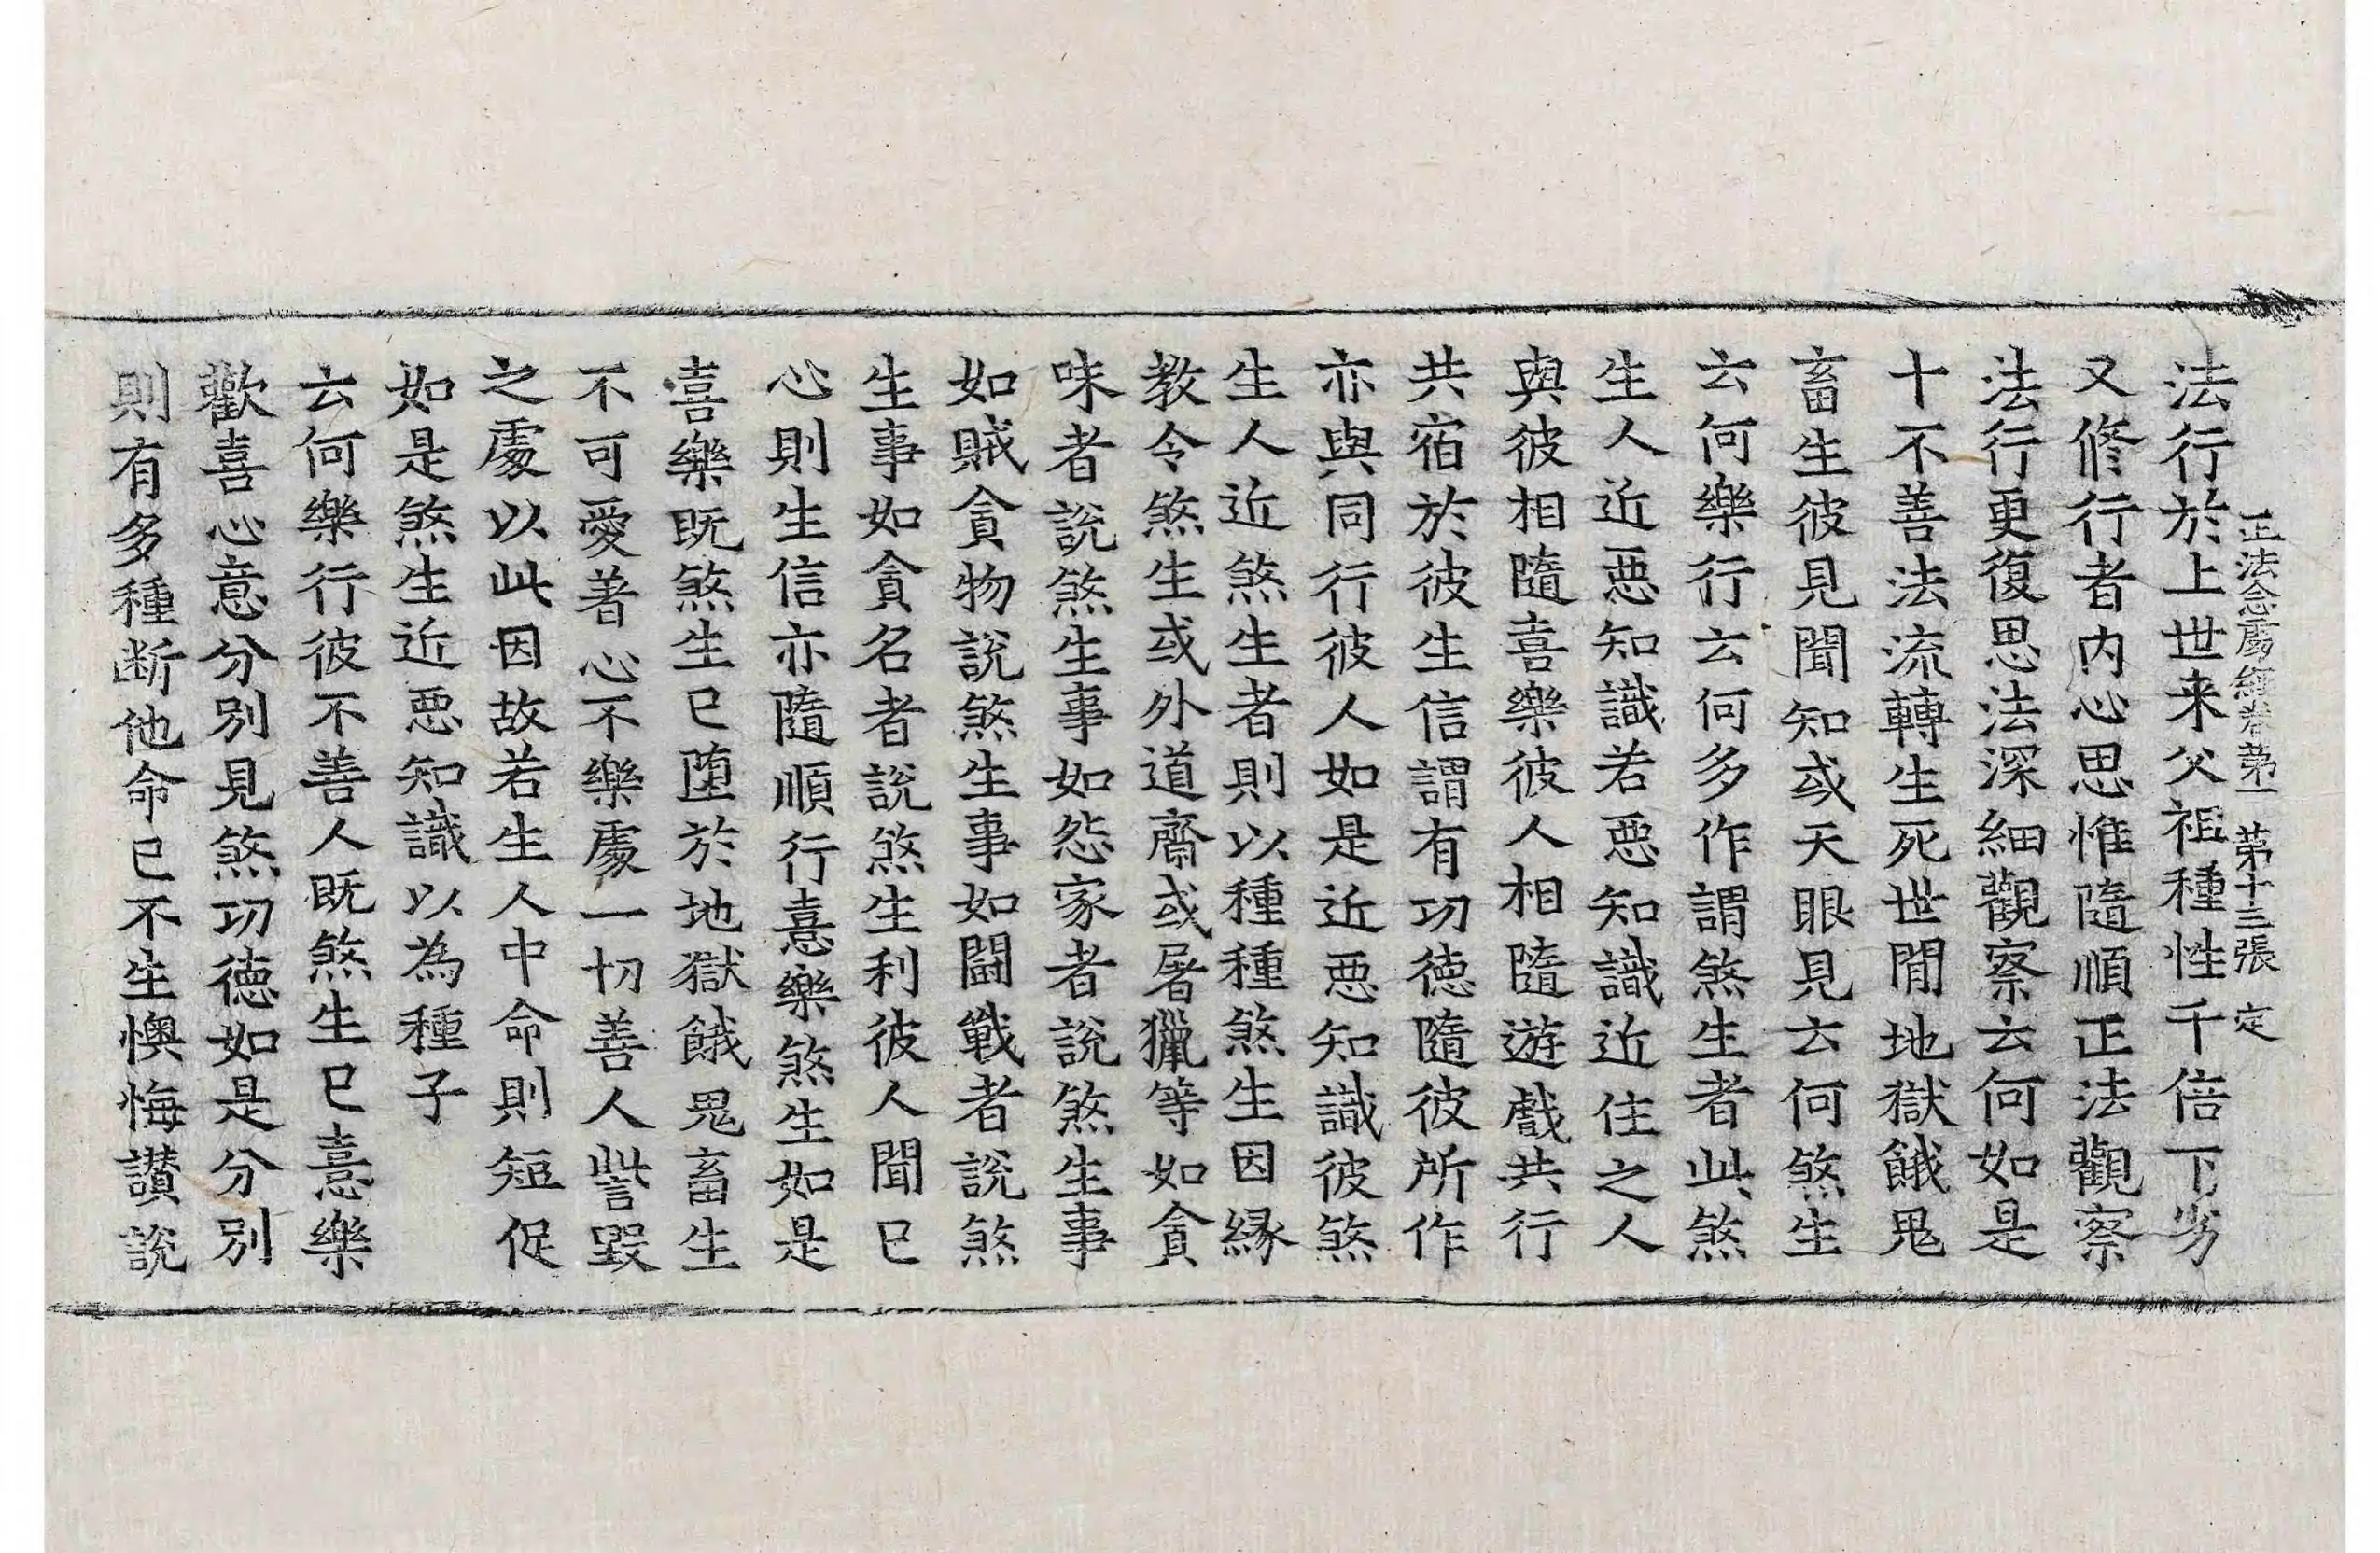 正法念處經卷第一 第十三張 定
法行於上世来父祖種性千倍下劣
又修行者内心思惟隨順正法觀察
法行更復思法深細觀察云何如是
十不善法流轉生死世間地獄餓鬼
畜生彼見聞知或天眼見云何煞生
云何樂行云何多作謂煞生者此煞
生人近惡知識若惡知識近住之人
與彼相隨喜樂彼人相隨遊戲共行
共宿於彼生信謂有功德隨彼所作
亦與同行彼人如是近惡知識彼煞
生人近煞生者則以種種煞生因緣
教令煞生或外道齋或屠獵等如貪
味者說煞生事如怨家者說煞生事
如賊貪物說煞生事如鬪戰者說煞
生事如貪名者說煞生利彼人聞已
心則生信亦隨順行憙樂煞生如是
喜樂既煞生已墮於地獄餓鬼畜生
不可愛著心不樂處一切善人訾毀
之處以此因故若生人中命則短促
如是煞生近惡知識以為種子
云何樂行彼不善人既煞生已憙樂
歡喜心意分別見煞功德如是分別
則有多種断他命已不生懊悔讚說